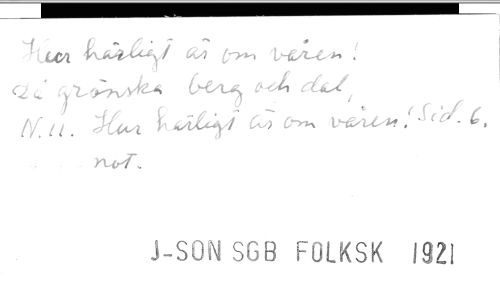 Hur härligt är om våren!
Då grönska berg och dal,
N. 11. Hur härligt är om våren! Sid. 6.
not.
J-SON SGB FOLKSK 1921